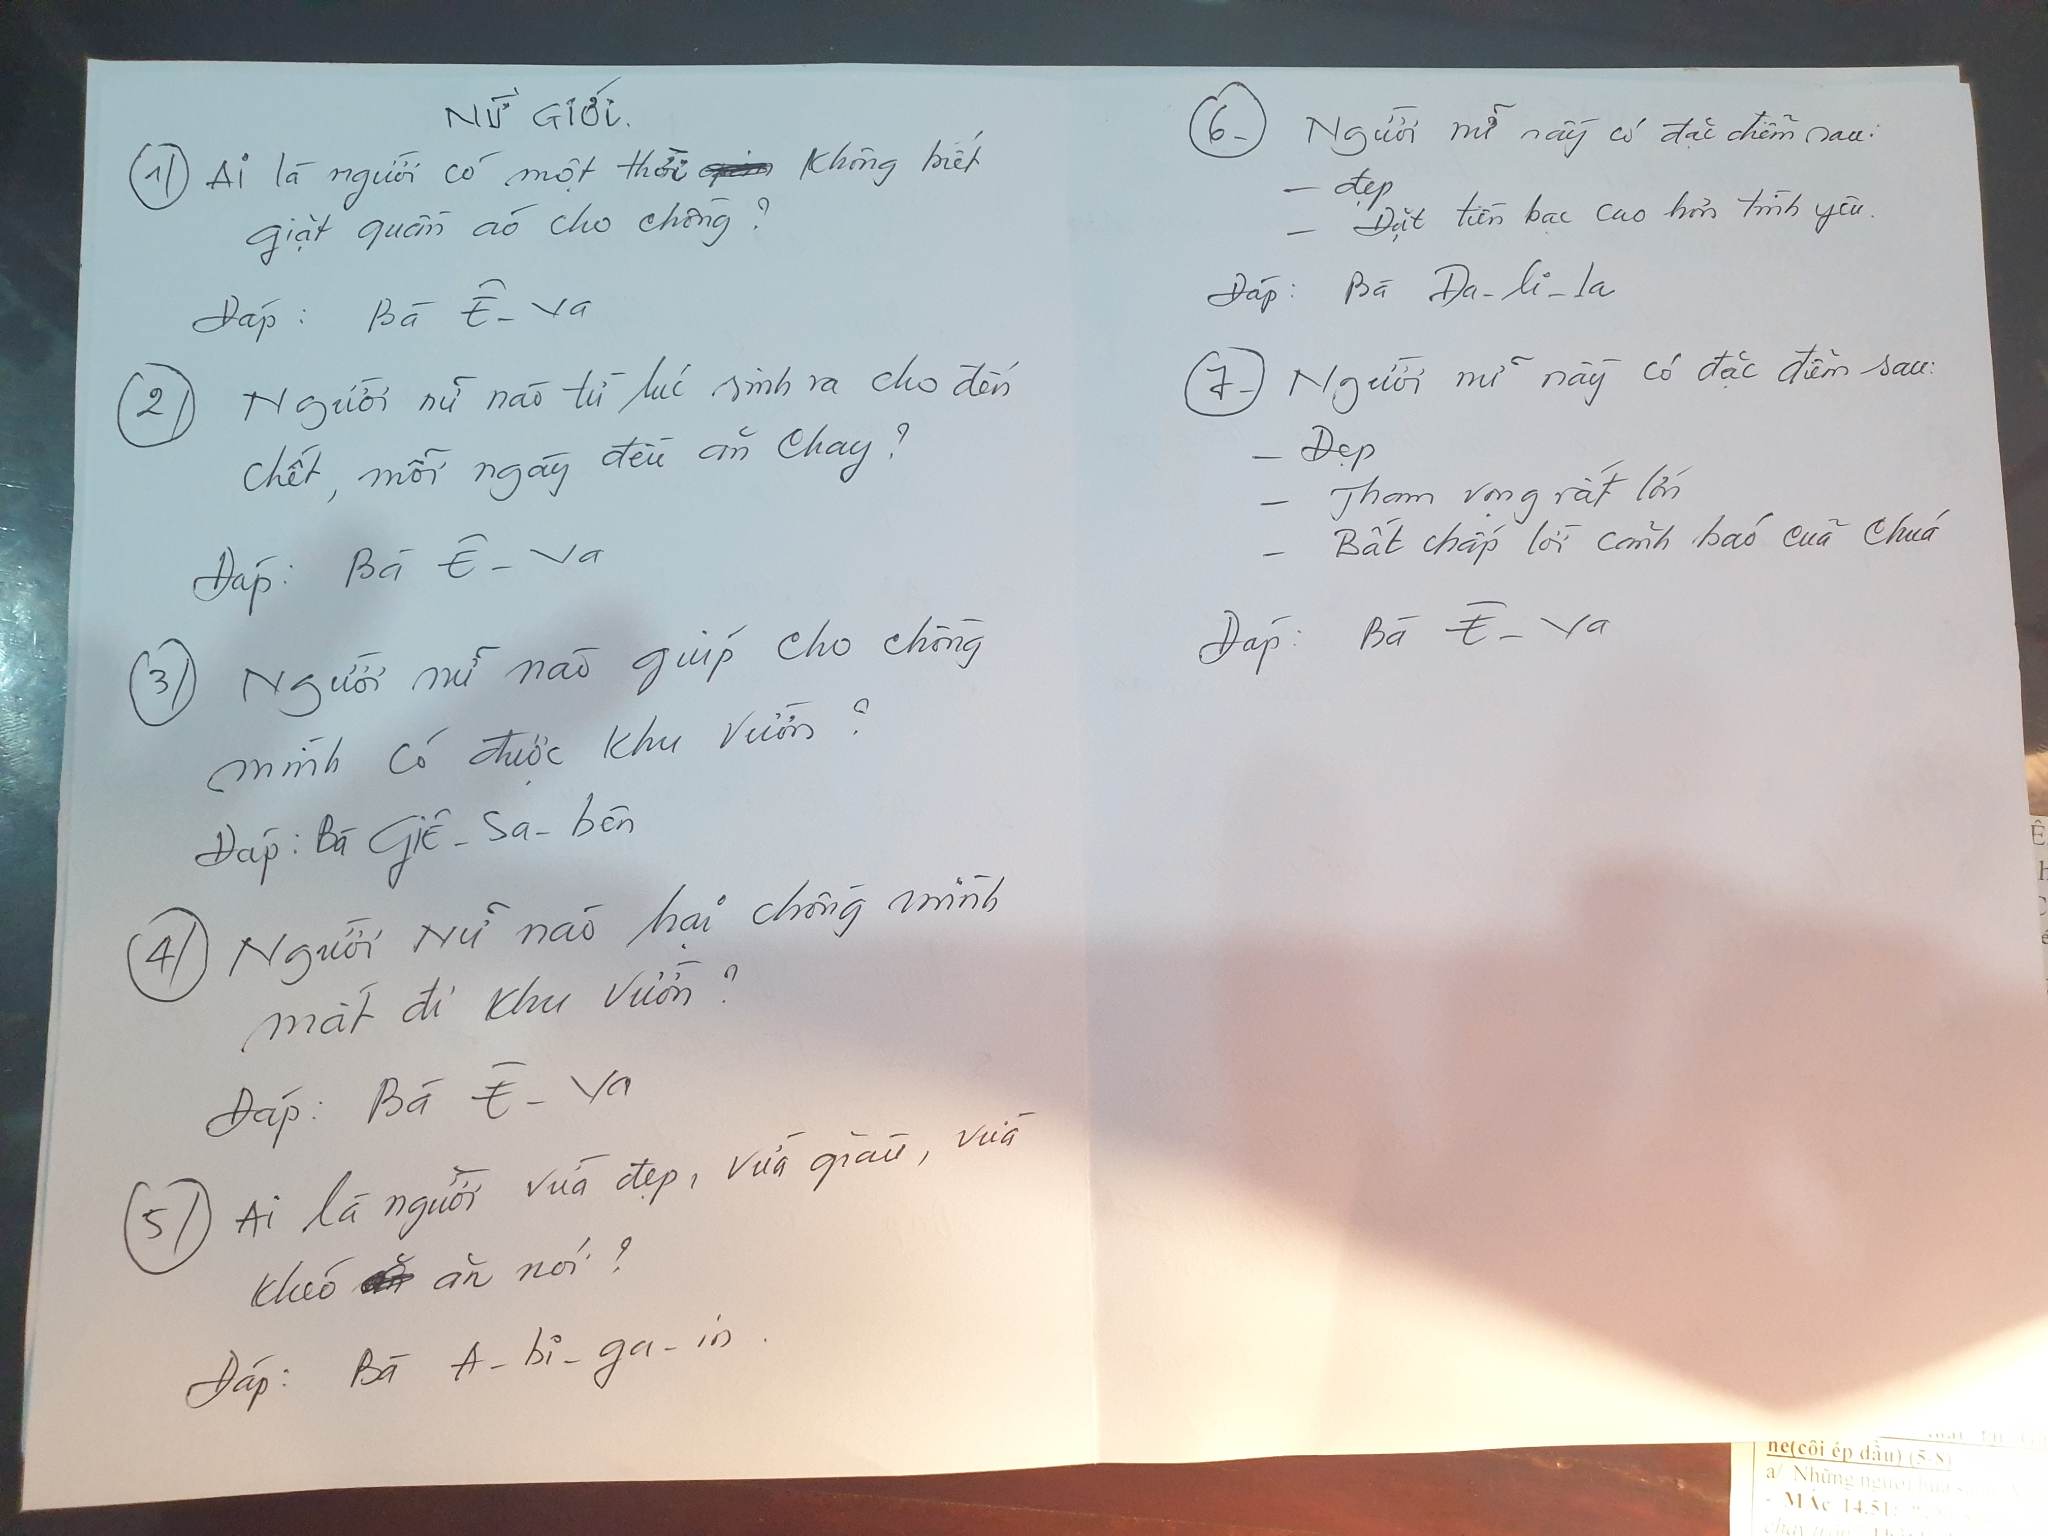 NỮ GIỚI.
1/ Ai là người có một thời không biết
giặt quần áo cho chồng?
Đáp: Bà Ê-Va
2/ Người nữ nào từ lúc sinh ra cho đến
chết, mỗi ngày đều ăn chay?
Đáp: Bà Ê-Va
3/ Người nữ nào giúp cho chồng
mình có được khu vườn?
Đáp: Bà Giê-Sa-bên
4/ Người Nữ nào hại chồng mình
mất đi khu vườn?
Đáp: Bà Ê-Va
5/ Ai là người vừa đẹp, vừa giàu, vừa
khéo ăn nói?
Đáp: Bà A-bi-ga-in.
6- Người nữ này có đặc điểm sau:
- đẹp
- Đặt tiền bạc cao hơn tình yêu.
Đáp: Bà Đa-li-la
7- Người nữ này có đặc điểm sau:
- Đẹp
- Tham vọng rất lớn
- Bất chấp lời cảnh báo của Chúa
Đáp: Bà Ê-Va
ne(cối ép dầu) (5-8)
a/ Những người
- MÁc 14.51: